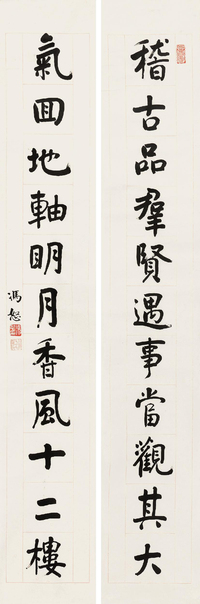 稽古品羣賢遇事當觀其大
氣回地軸明月香風十二樓
馮恕